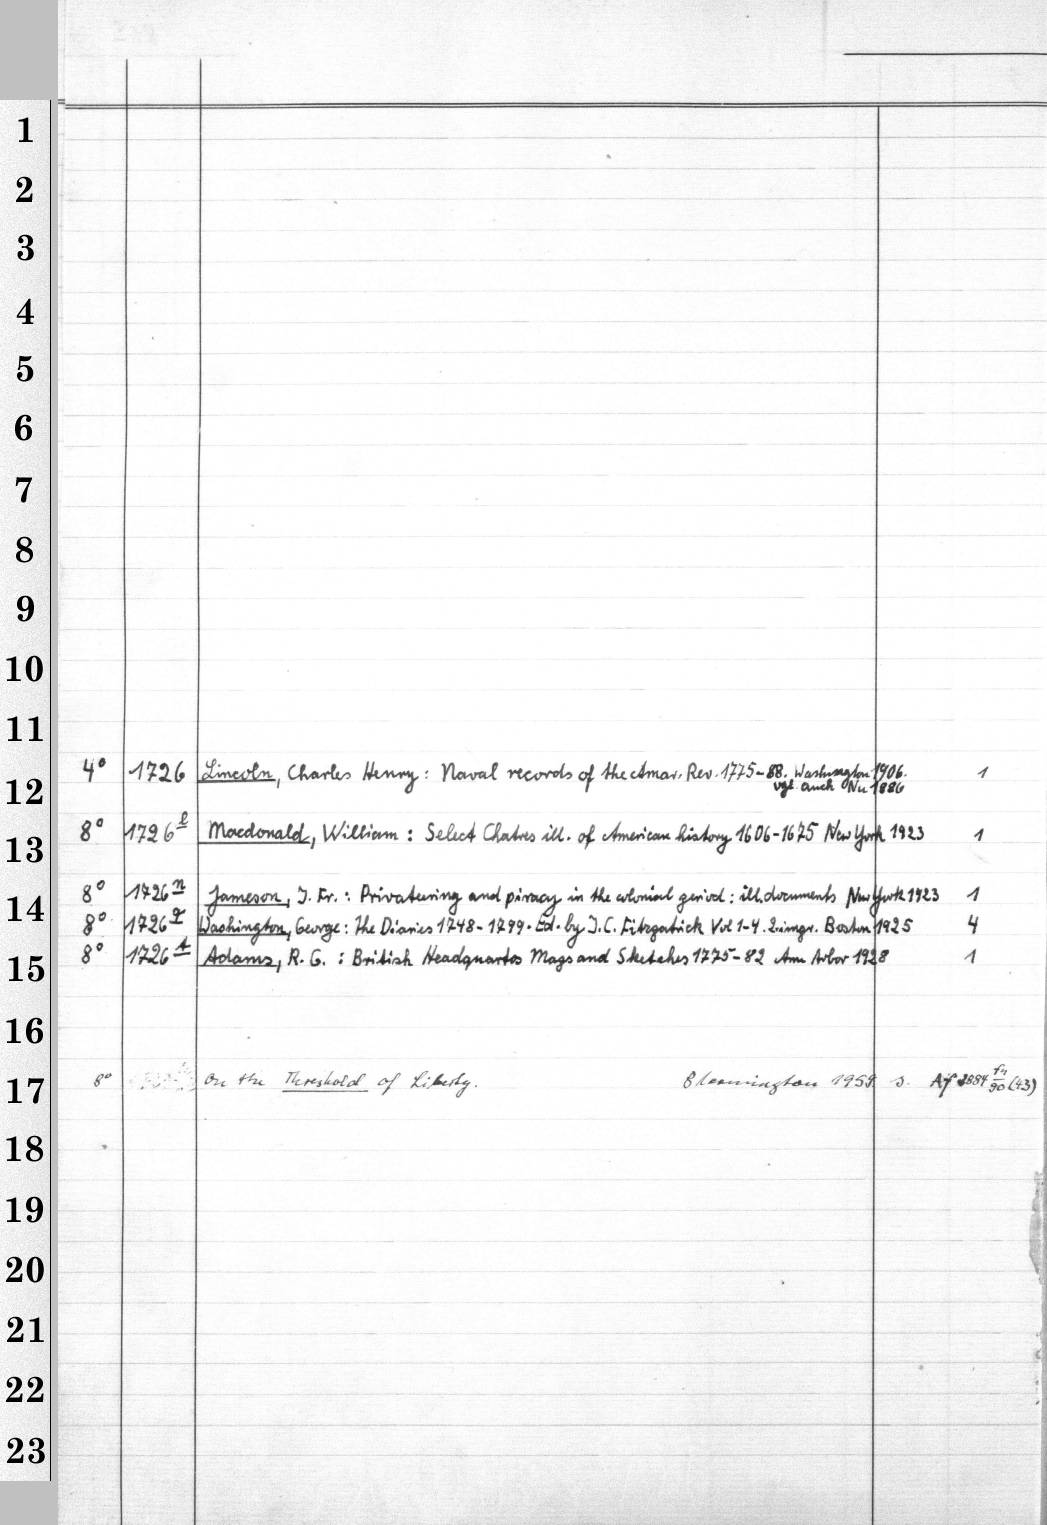 1
2
3
4
5
6
7
8
9
10
11
4° 1726 Lincoln, Charles Henry: Naval records of the Amar. Rev. 1775-88. Washington 1906. 1
12 vgl. auch Nu 1886
8° 1726 l Macdonald, William: Select Chatres ill. of American history 1606-1675 New York 1923 1
13
8° 1726 n Jameson, J. Fr.: Privateering and piracy in the colonial period: ill. documents New York 1923 1
14
8° 1726 Washington, George: The Diaries 1748-1799. Ed. by J. C. Fitzgatrick Vol 1-4. 2. impr. Boston 1925 4
8° 1726 t Adams, R. G.: British Headquartes Maps and Sketches 1775-82 Ann Arbor 1928 1
15
16
8° On the Threshold of Liberty. Bloomington 1959 s. Af (43)
17
18
19
20
21
22
23